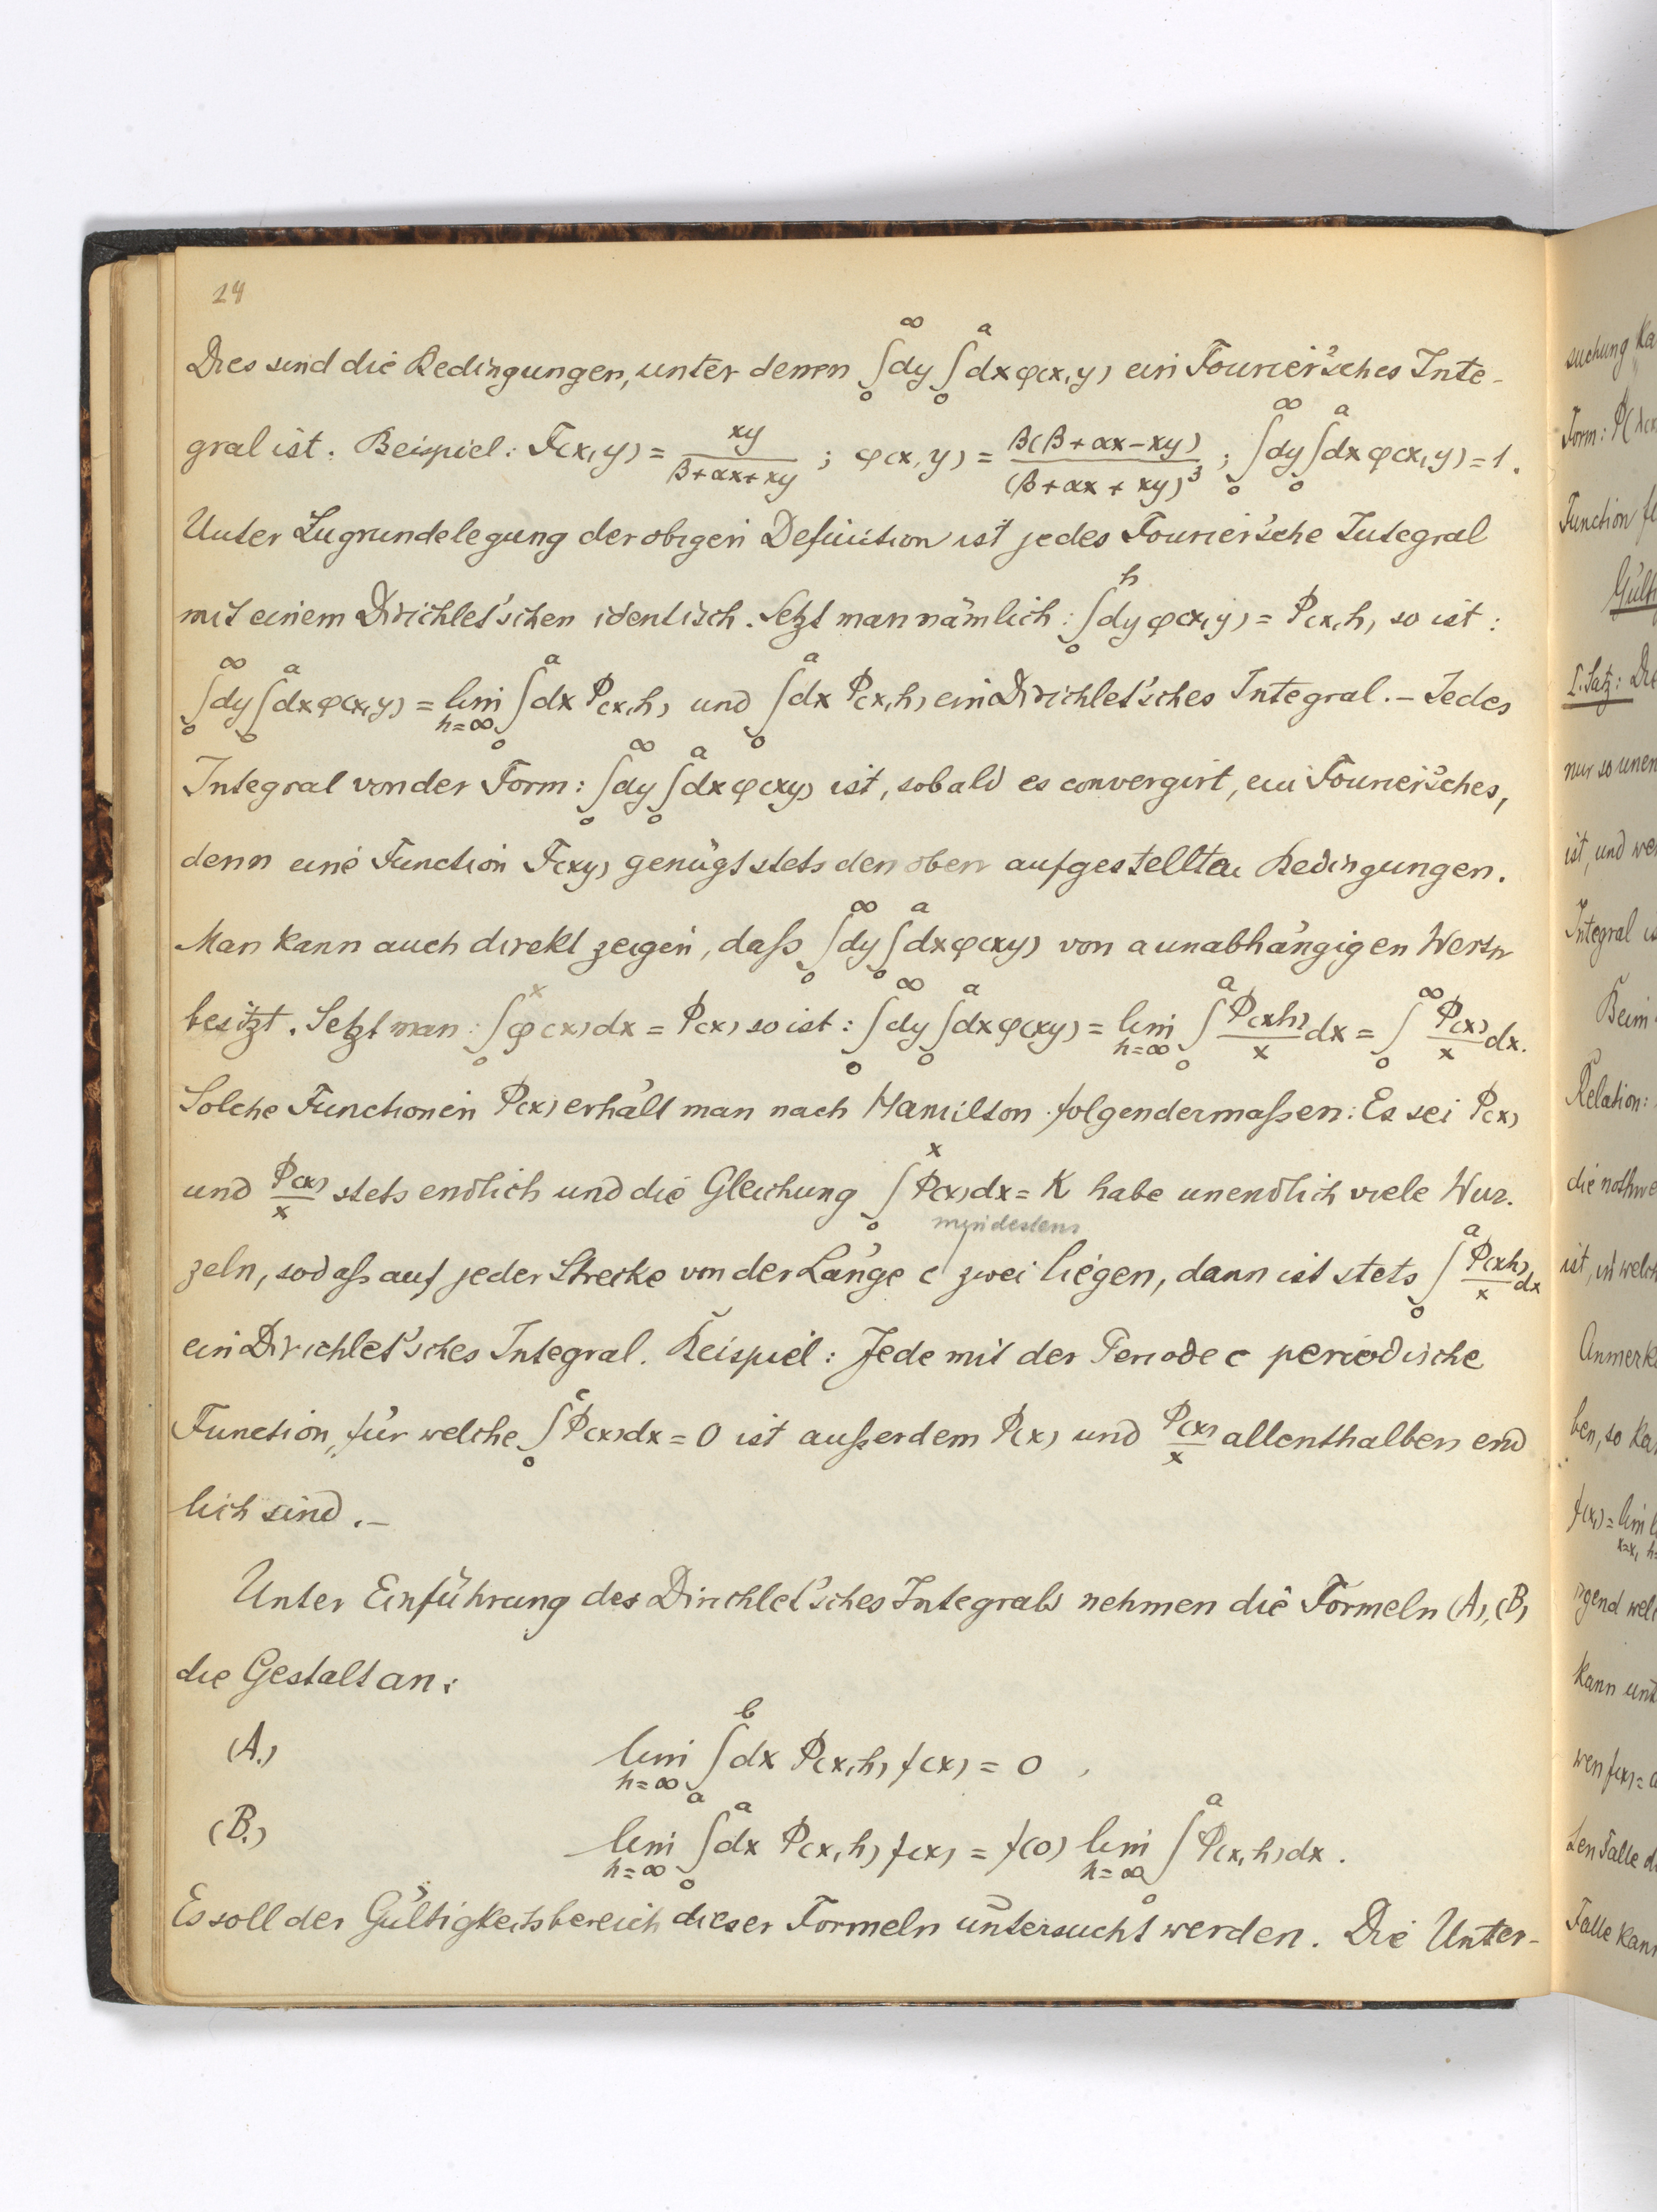 24
Dies sind die Bedingungen, unter denen ∫₀^∞ dy ∫₀^a dx φ(x,y) ein Fourier'sches Inte-
gral ist. Beispiel: F(x,y) = xy/(β+αx+xy) ; φ(x,y) = β(β+αx-xy)/(β+αx+xy)³ ; ∫₀^∞ dy ∫₀^a dx φ(x,y) = 1.
Unter Zugrundelegung der obigen Definition ist jedes Fourier'sche Integral
mit einem Dirichlet'schen identisch. Setzt man nämlich: ∫₀^h dy φ(x,y) = P(x,h) so ist:
∫₀^∞ dy ∫₀^a dx φ(x,y) = lim h=∞ ∫₀^a dx P(x,h) und ∫₀^a dx P(x,h) ein Dirichlet'sches Integral. – Jedes
Integral von der Form: ∫₀^∞ dy ∫₀^a dx φ(xy) ist, sobald es convergirt, ein Fourier'sches,
denn eine Function F(xy) genügt stets den oben aufgestellten Bedingungen.
Man kann auch direkt zeigen, daß ∫₀^∞ dy ∫₀^a dx φ(xy) von a unabhängigen Werth
besitzt. Setzt man: ∫₀^x φ(x)dx = P(x) so ist: ∫₀^∞ dy ∫₀^a dx φ(xy) = lim h=∞ ∫₀^a P(xh)/x dx = ∫₀^∞ P(x)/x dx.
Solche Functionen P(x) erhält man nach Hamilton folgendermaßen: Es sei P(x)
und P(x)/x stets endlich und die Gleichung ∫₀^x P(x)dx = K habe unendlich viele Wur-
mindestens
zeln, sodaß auf jeder Strecke von der Länge c zwei liegen, dann ist stets ∫₀^a P(xh)/x dx
ein Dirichlet'sches Integral. Beispiel: Jede mit der Periode c periodische
Function, für welche ∫₀^c P(x)dx = 0 ist außerdem P(x) und P(x)/x allenthalben end
lich sind. –
Unter Einführung des Dirichlet'sches Integrals nehmen die Formeln (A), (B)
die Gestalt an:
(A.) lim h=∞ ∫ₐ^b dx P(x,h) f(x) = 0 ,
(B.) lim h=∞ ∫₀^a dx P(x,h) f(x) = f(0) lim h=∞ ∫₀^a P(x,h)dx .
Es soll der Gültigkeitsbereich dieser Formeln untersucht werden. Die Unter-
suchung
Form: P(
Function
I. Satz: Die
nur so unen
ist, und we
Integral is
Beim
Relation:
die nothwe
ist, in welch
Anmerk
ben, so ka
f(x₁) = lim
x=x₁
irgend wel
kann unt
wen f(x) =
ten Falle d
Falle kann